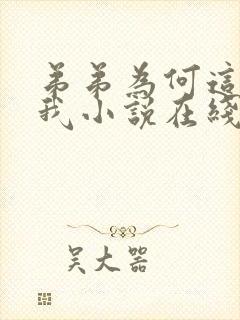 弟弟為何這
我小說在綫
吴大器